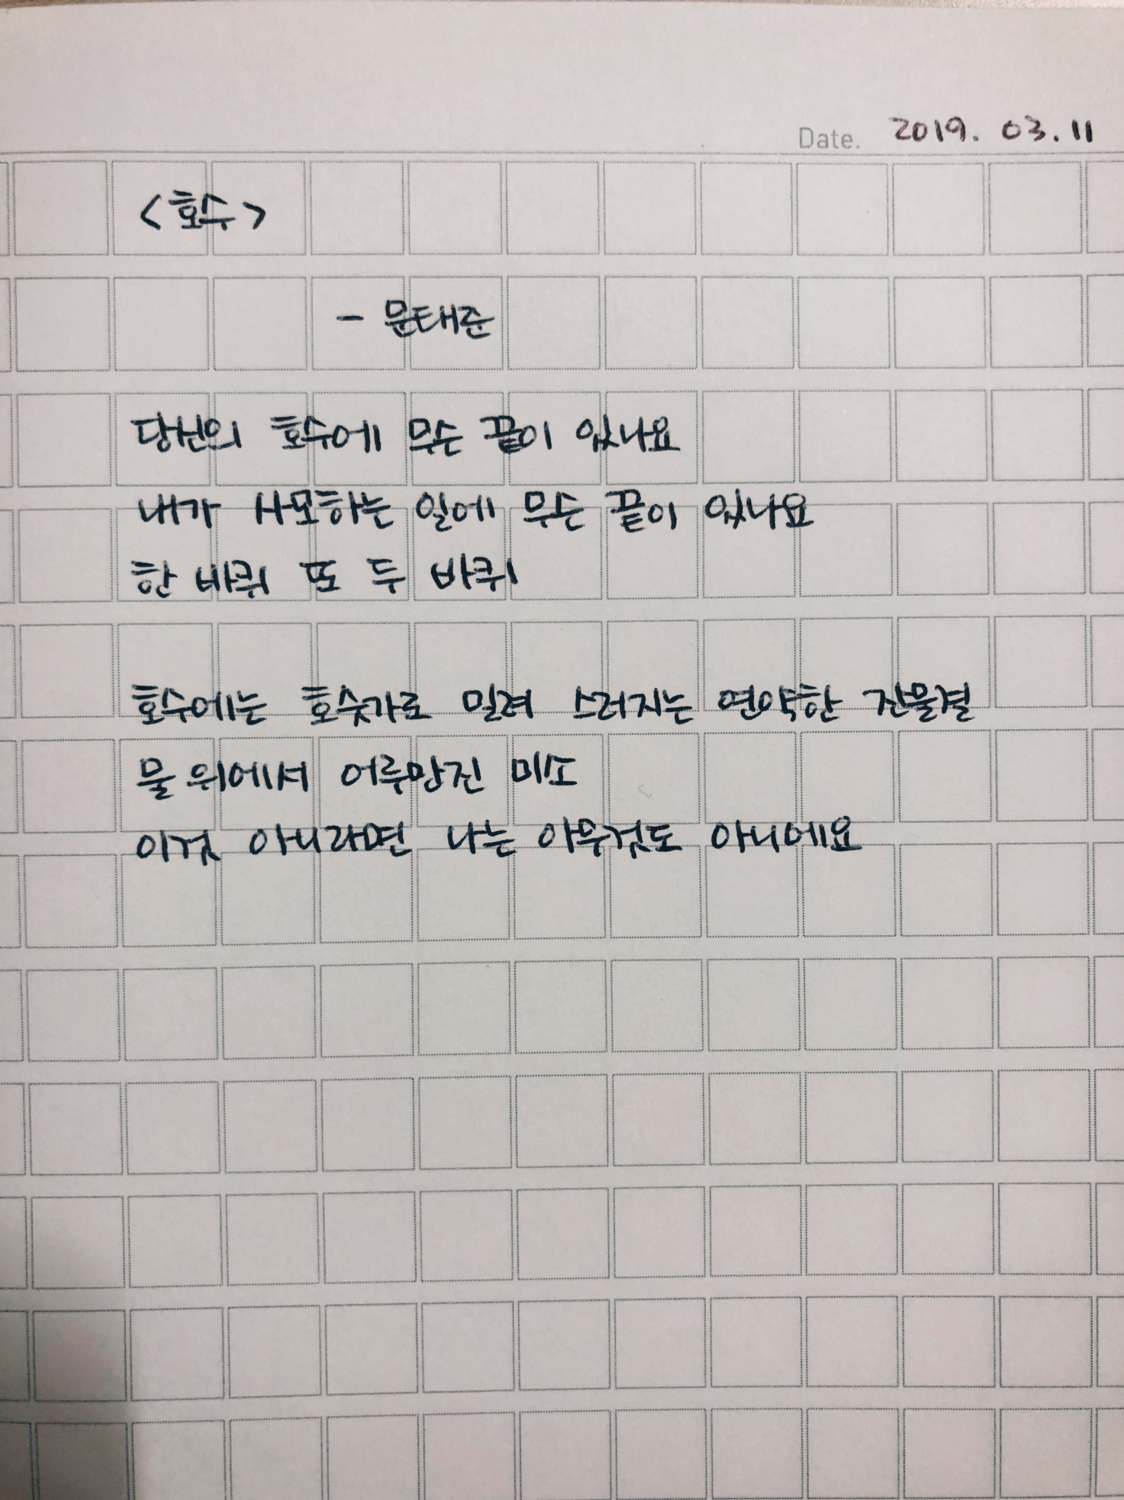 Date. 2019. 03. 11
<호수>
- 문태준
당신의 호수에 무슨 끝이 있나요
내가 사모하는 일에 무슨 끝이 있나요
한 바퀴 또 두 바퀴
호수에는 호숫가로 밀려 스러지는 연약한 잔물결
물 위에서 어루만진 미소
이것 아니라면 나는 아무것도 아니에요